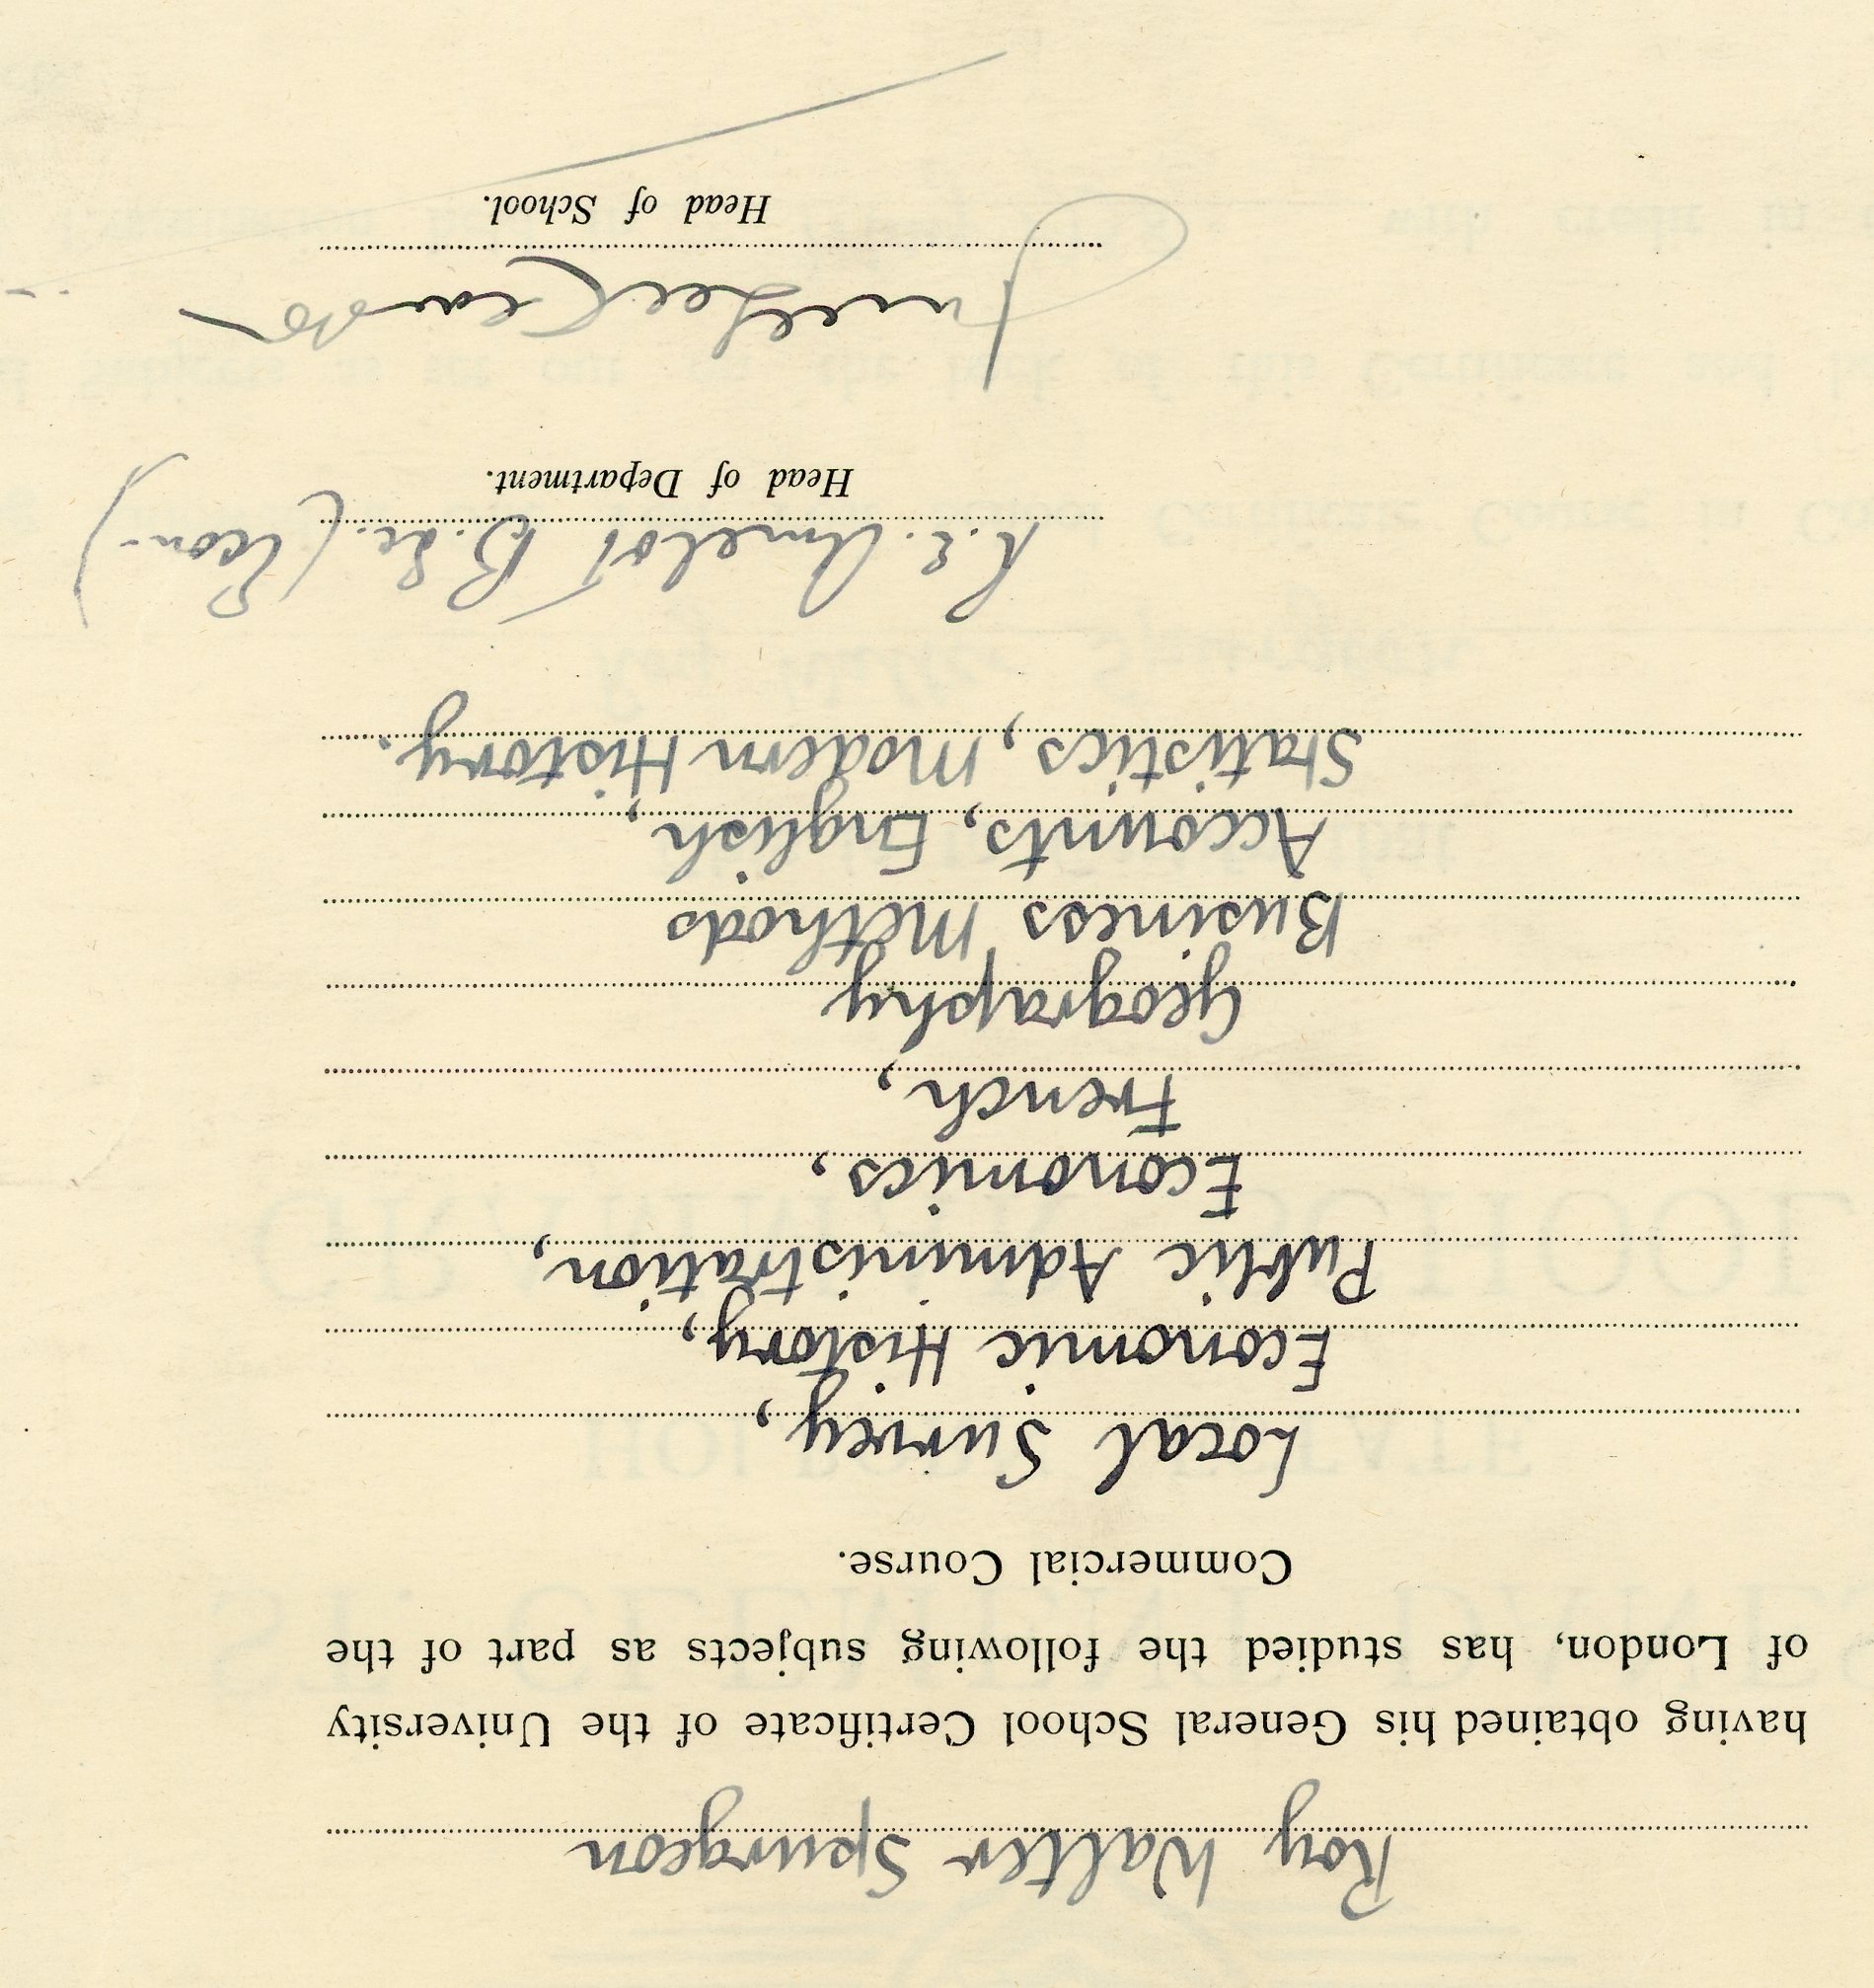 Roy Walter Spurgeon
having obtained his General School Certificate of the University
of London, has studied the following subjects as part of the
Commercial Course.
Local Survey,
Economic History,
Public Administration,
Economics,
French,
Geography
Business Methods
Accounts, English,
Statistics, Modern History.
B.Sc. (Econ.)
Head of Department.
Head of School.